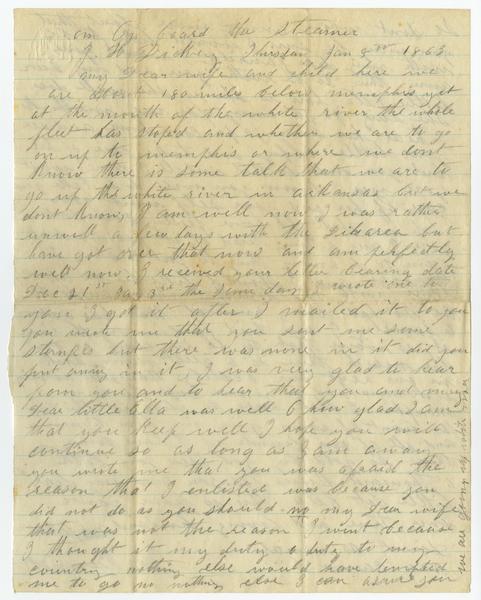 on board the Steamer
J. H. Dickey Thirsday Jan 8th 1863
my Dear wife and child here we
are about 180 miles below memphis yet
at the mouth of the white river the whole
fleet has stoped and whether we are to go
on up to memphis or where we dont
know there is some talk that we are to
go up the white river in arkansas but we
dont know, I am well now I was rather
unwell a few days with the but
have got over that now and am perfectly
well now. I received your letter bearing date
Dec 21st Jan 3rd the same day I wrote one to
you, I got it after I mailed it to you
you wrote me that you sent me some
stamps but there was none in it did you
put anny in it, I was very glad to hear
from you and to hear that you and my
Dear little Ella was well O how glad I am
that you keep well I hope you will
continue so as long as I am away
you wrote me that you was afraid the
reason that I enlisted was because you
did not do as you should no my Dear wife
that was not the reason I went because
I thought it my duty a duty to my
country nothing else would have tempted
me to go no nothing else I can assure you
we are going up white river